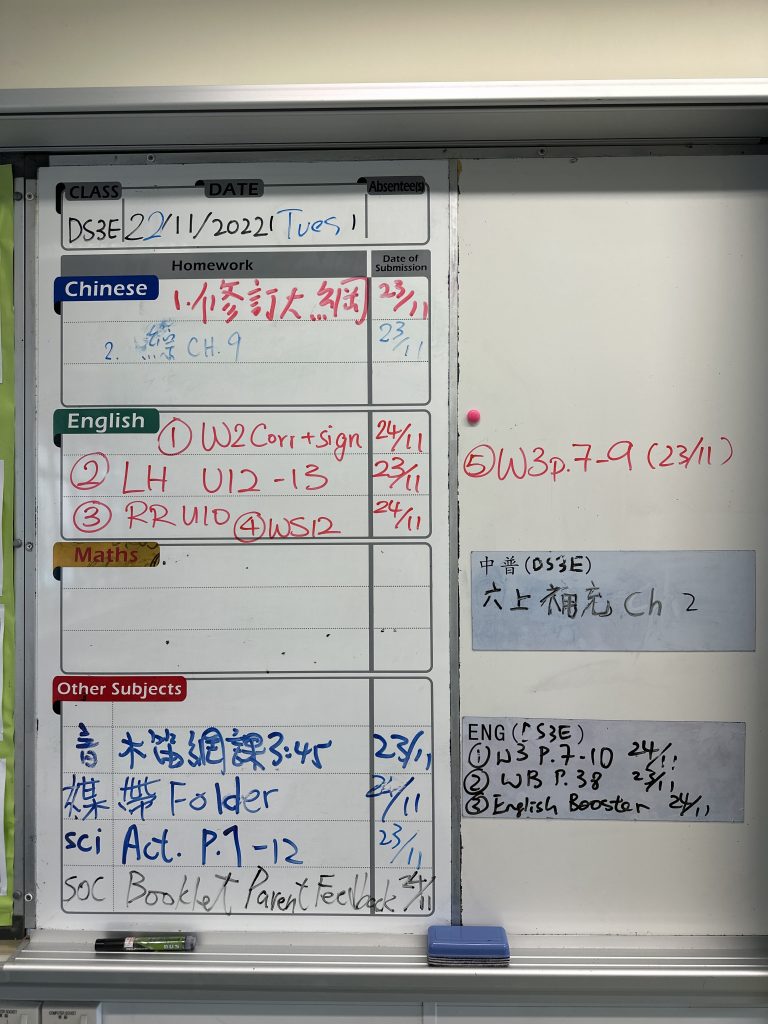 CLASS DATE Absentee(s)
DS3E 22/11/2022 Tues
Homework Date of Submission
Chinese
1. 修訂大綱 23/11
2. CH. 9 23/11
English
① W2 Corr + sign 24/11
② LH U12-13 23/11
③ RR U10 ④ WS12 24/11
Maths
Other Subjects
音 木笛網課3:45 23/11
帶 Folder 24/11
sci Act. P.7-12 23/11
SOC Booklet Parent Feedback 24/11
⑤ W3 p.7-9 (23/11)
中普(DS3E)
六上補充 Ch 2
ENG (DS3E)
① W3 P.7-10 24/11
② WB P.38 23/11
③ English Booster 24/11